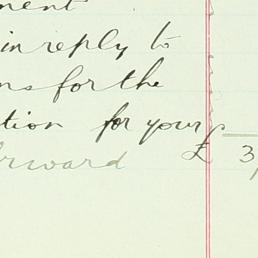 ment
in reply to
ns for the
tion for your
rward £ 3